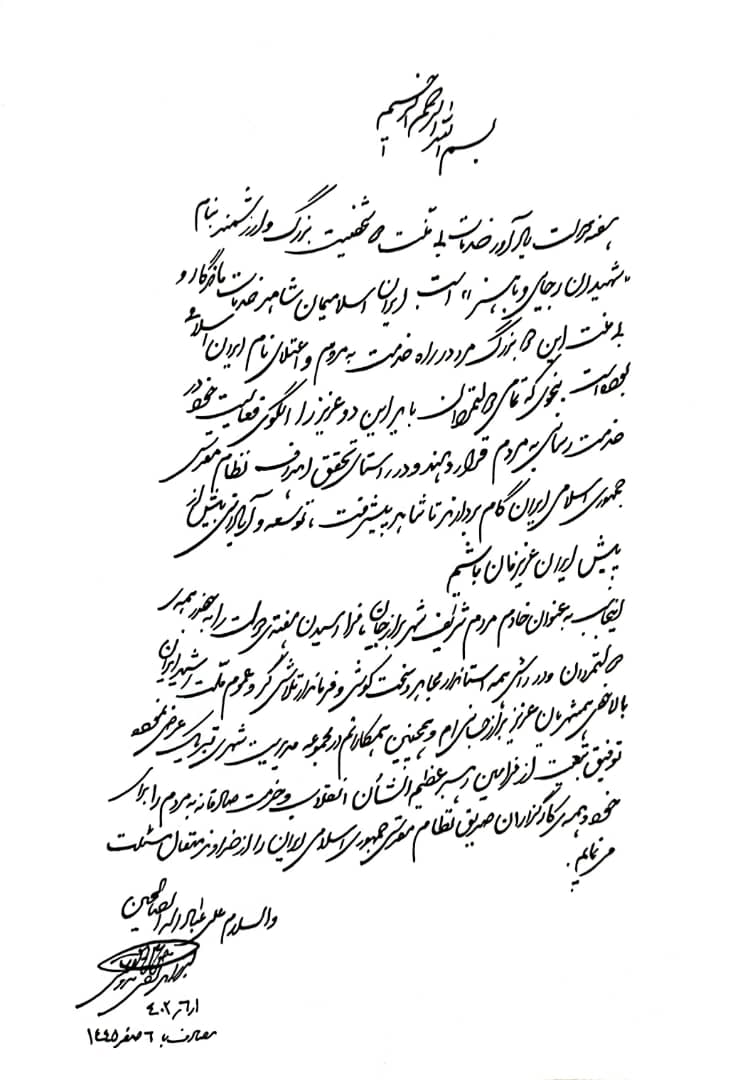 بسم الله الرحمن الرحیم
هفته دولت یادآور خدمات بی منت دو شخصیت بزرگ و ارزشمند بنام
"شهیدان رجایی و باهنر" است. ایران اسلامیمان شاهد خدمات ماندگار و
بی منت این دو بزرگ مرد در راه خدمت به مردم و اعتلای نام ایران اسلامی
بوده است. بنحوی که تمامی دولتمردان باید این دو عزیز را الگوی فعالیت خود در
خدمت رسانی به مردم قرار دهند و در راستای تحقق اهداف نظام مقدس
جمهوری اسلامی ایران گام بردارند تا شاهد پیشرفت، توسعه و آبادانی بیش از
پیش ایران عزیزمان باشیم
اینجانب به عنوان خادم مردم شریف شهر برازجان، فرا رسیدن هفته‌ی دولت را به همه‌ی
دولتمردان و در راس همه استاندار مجاهد و سخت کوش و فرماندار تلاش گر و عموم ملت رشید ایران
بالاخص همشهریان عزیز برازجانی ام و همچنین همکارانم در مجموعه مدیریت شهری تبریک عرض نموده
توفیق تبعیت از فرامین رهبر عظیم الشأن انقلاب و خدمت صادقانه به مردم را برای
خود و همه‌ی کارگزاران صدیق نظام مقدس جمهوری اسلامی ایران را از خداوند متعال مسئلت
می نمایم.
والسلام علی عبادالله الصالحین
۴۰۲/۶/۱
مصادف با ۶ صفر ۱۴۴۵